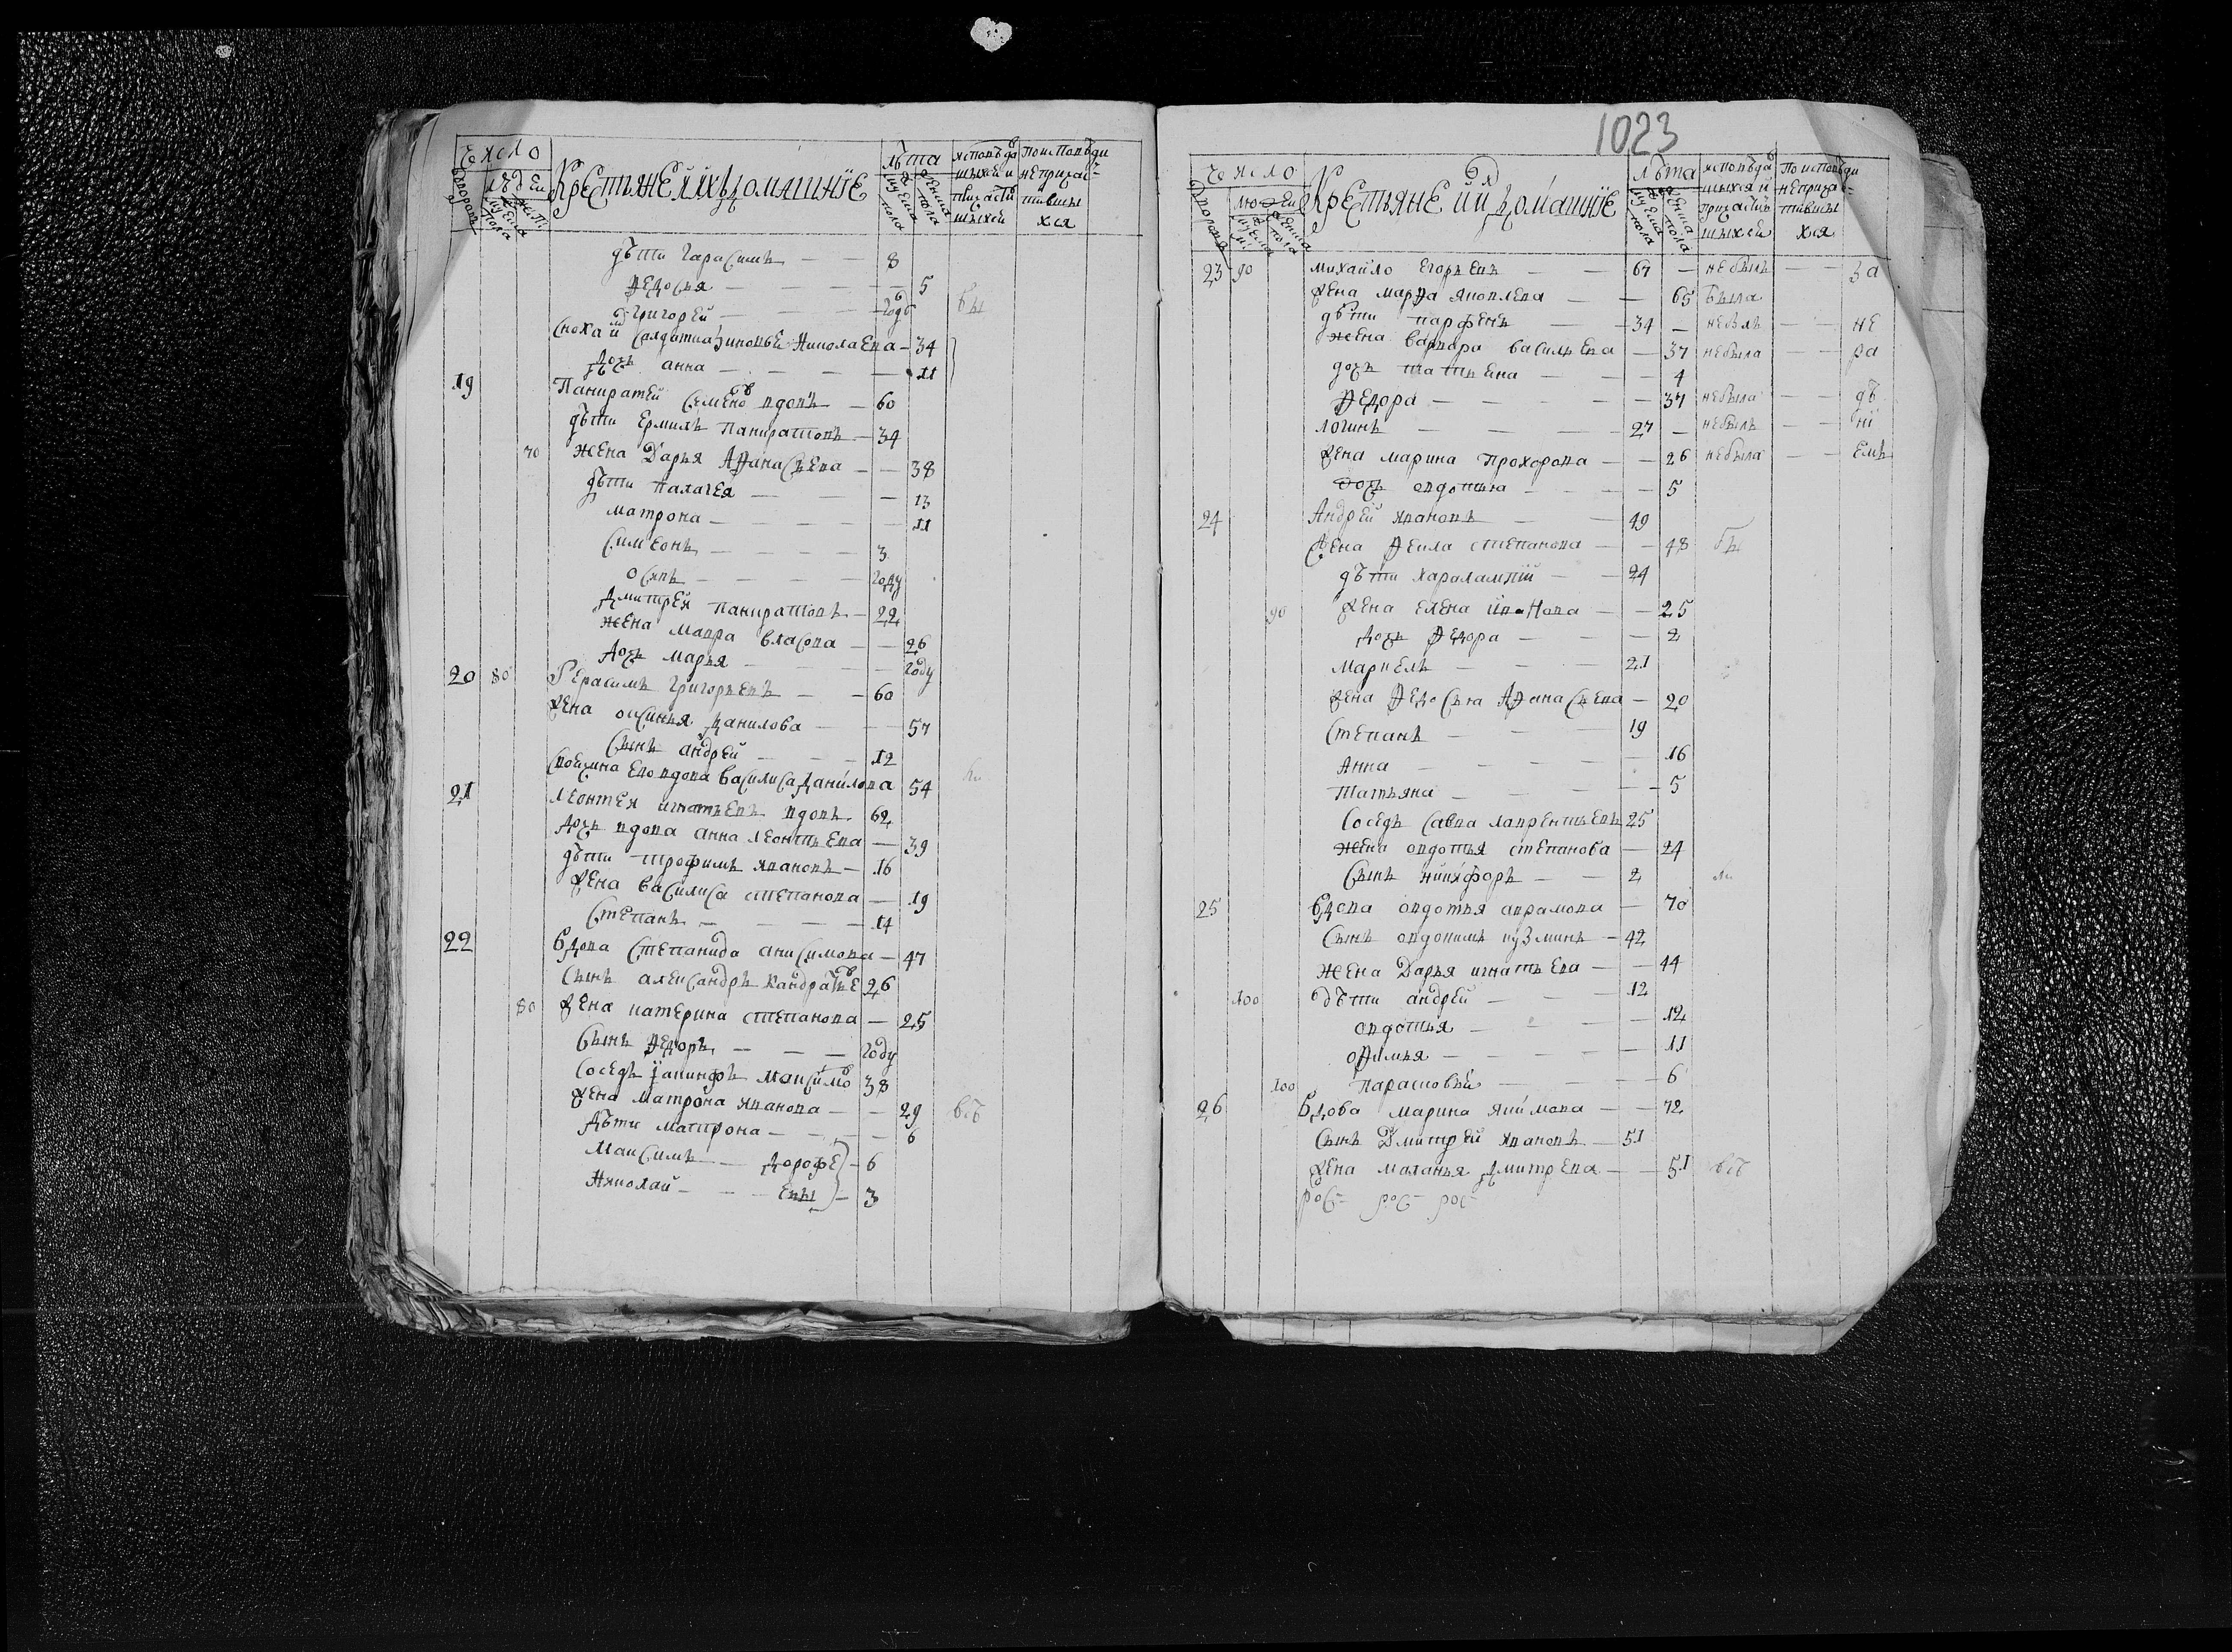 1023
Число
Дворовъ
Людей
Мужеска пола
Женска пола
Крестьяне и ихъ домашнїе
Лѣта
мужеска пола
женска пола
исповѣдавшыхся и причастившыхся
По исповѣди непричастившыхся
дѣти Гарасимъ — — 8
Ѳедосья — — — 5
Григорей — — — году бы
Сноха солдатка Зиновья Николаева — 34
дочь анна — — — 11
19 Панкратей Семеновъ вдовъ — 60
дѣти Ермилъ Панкратовъ — 34
70 жена Дарья Аѳанасьева — — 38
дѣти палагея — — 13
матрона — — — 11
Симеонъ — — — 3
осипъ — — — году
Дмитрей Панкратовъ — 22
жена Мавра Власова — — 26
Дочь марья — — — году
20 80 Герасимъ григорьевъ — — 60
жена оксинья Данилова — — 57
Сынъ андрей — — — 12
Своячина ево вдова Василиса Данилова 54 ли
21 Леонтей игнатьевъ вдовъ 62
дочь вдова анна леонтьева — 39
дѣти трофимъ ивановъ — 16
жена Василиса степанова — 19
Степанъ — — — 14
22 Вдова Степанида анисимова — 47
Сынъ александръ Кандратьевъ 26
80 жена катерина степанова — 25
Сынъ Ѳедоръ — — — году
Соседъ Іакинфъ максимовъ 38
жена матрона иванова — — 29 всѣ
Дѣти матрона — — — 6
Максимъ — Дорофе — 6
Николай — — евы — 3
Число
Дворовъ
Людей
Крестьяне и их домашнїе
Лѣта
мужеска пола
женска пола
исповѣдавшыхся и причастившыхся
По исповѣди непричастившыхся
23 90 михайло егорьевъ — — 67 — небылъ — — за
жена марѳа яковлева — — 65 была
дѣти парфенъ — — 34 — небылъ — — не
жена варвара васильева — 37 небыла — — ра
дочь татьяна — — — 4
Ѳедора — — — — 37 небыла — — дѣ
логинъ — — — 27 — небылъ — — нї
жена марина прохорова — — 26 небыла — — емъ
дочь овдотья — — — 5
24 Андрей ивановъ — — 49
жена Ѳекла степанова — — 48 бы
дѣти харалампїй — — 24
90 жена елена иванова — — 25
дочь Ѳедора — — — 2
маркелъ — — — 21
жена Ѳедосья Аѳанасьева — 20
Степанъ — — — 19
Анна — — — — 16
татьяна — — — — 5
Соседъ Савва лаврентьевъ 25
жена овдотья степанова — 24
Сынъ никифоръ — — 2 ли
25 Вдова овдотья аврамова — 70
Сынъ овдокимъ кузминъ — 42
жена Дарья игнатьева — — 44
100 дѣти андрей — — — 12
овдотья — — — 12
оѳимья — — — — 11
100 парасковья — — — 6
26 Вдова марина якимова — — 72
Сынъ Дмитрей ивановъ — 51
жена маланья Дмитрева — — 51 всѣ